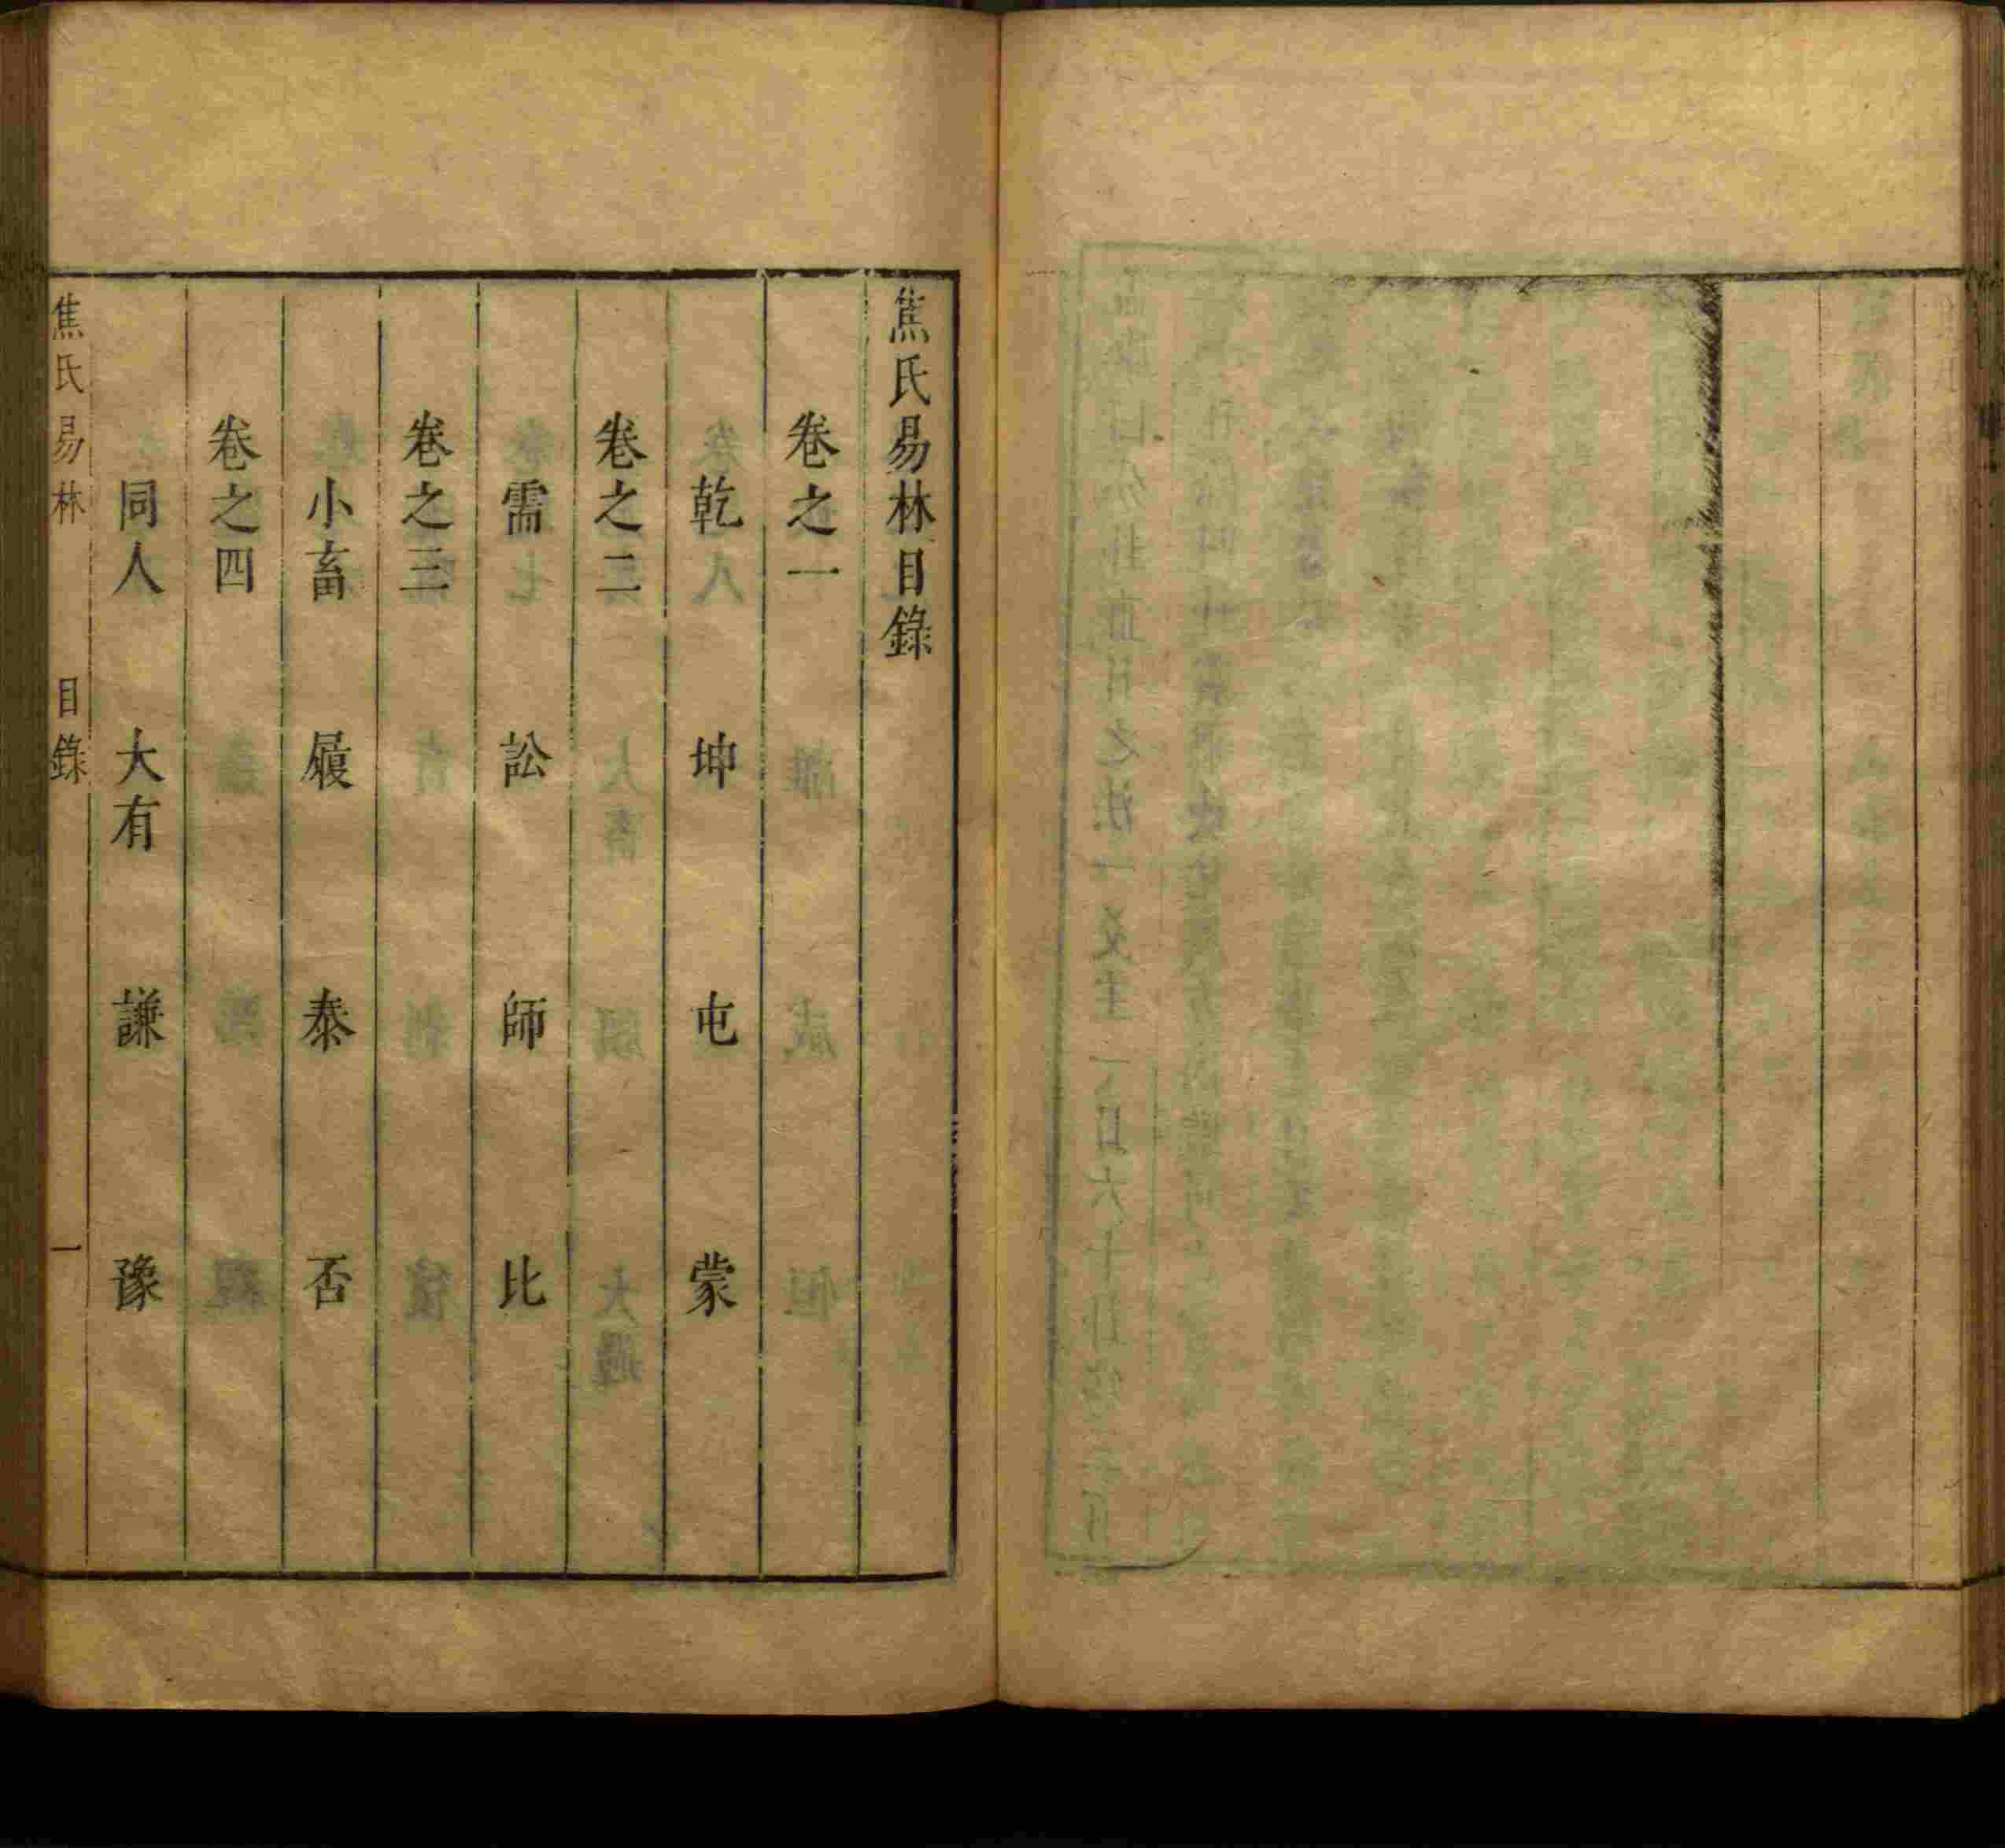 焦氏易林目錄
卷之一
乾 坤 屯 蒙
卷之二
需 訟 師 比
卷之三
小畜 履 泰 否
卷之四
同人 大有 謙 豫
焦氏易林 目錄 一